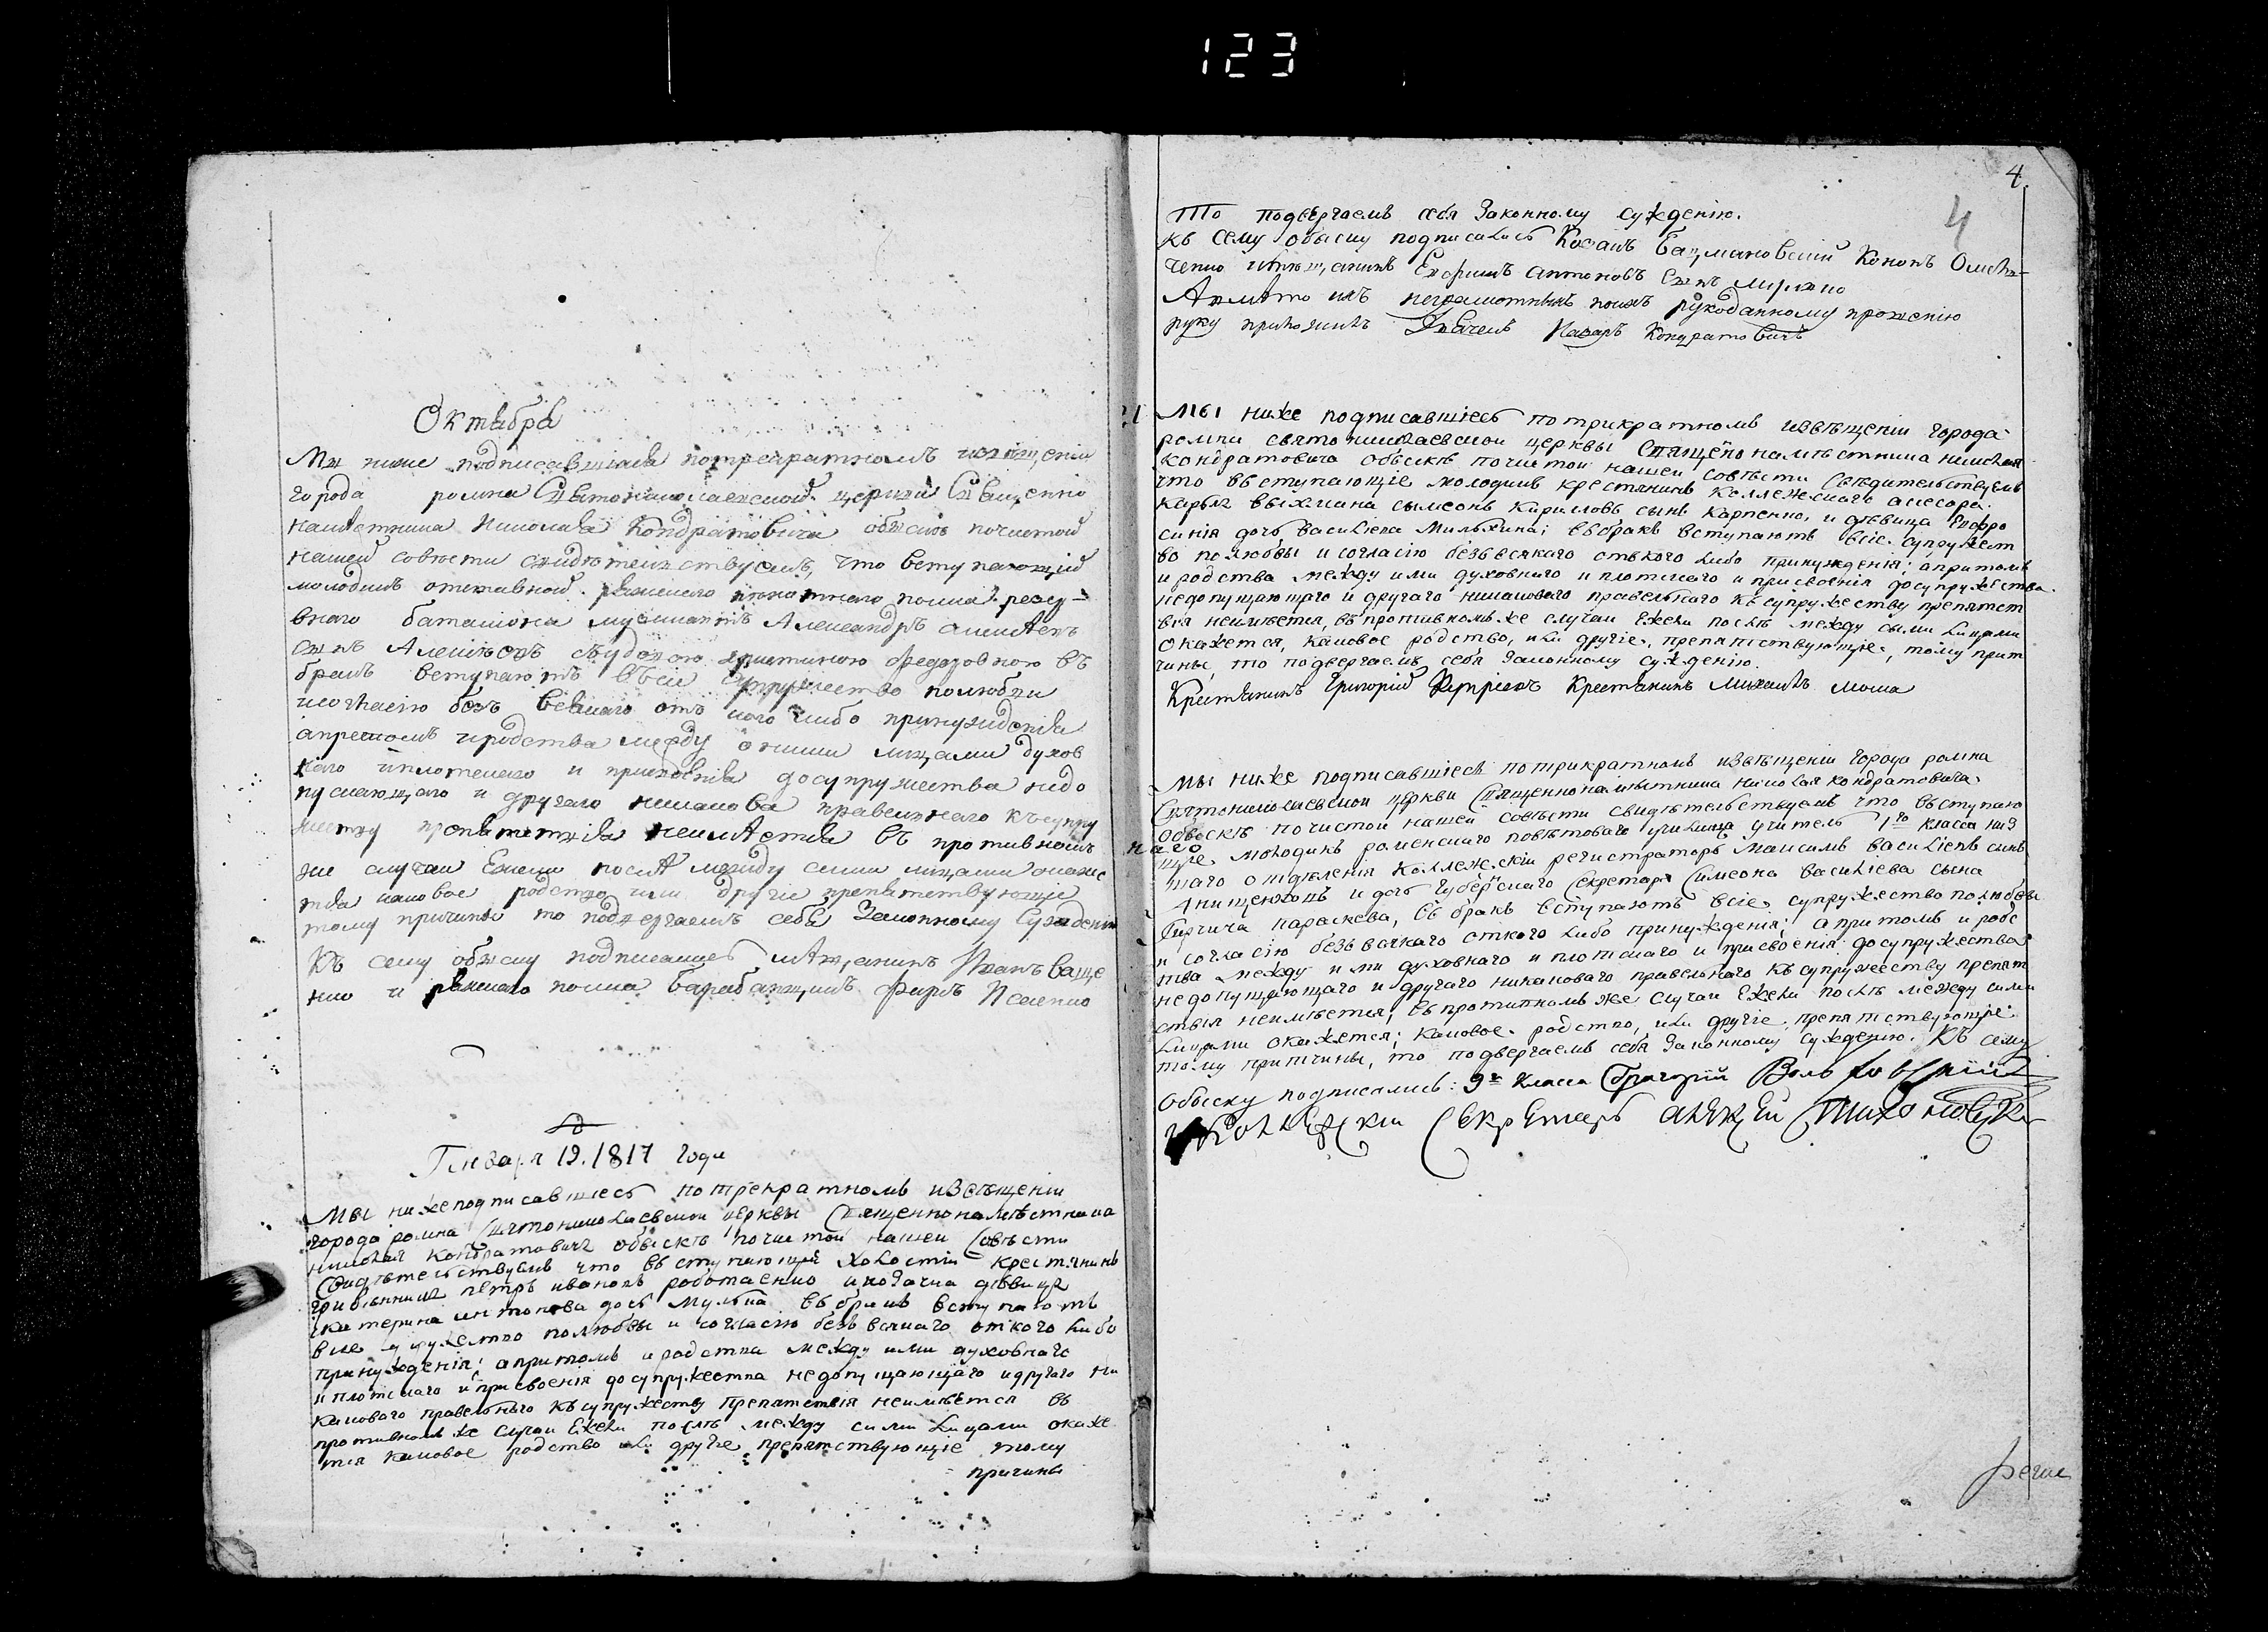 123
Октября
Мы ниже подписавшияся потрекратномъ извѣщеніи
города ромна Святониколаевской церкви Священно
намѣстника Николая Кондратовича обыскъ почистой
нашей совѣсти свидѣтелствуемъ, что вступающій
молодикъ отставной пѣхотнаго полка резер-
внаго баталиона музикантъ Александръ
сынъ Алексѣевъ съудовою христиною федоровною въ
бракъ вступаютъ въ сіе супружество полюбви
исогласію безъ всякаго отъ кого либо принужденія
апретомъ иродства между оними лицами духов
наго иплотскаго и присвоенія досупружества недо
пускающаго и другаго никакова правелнаго къ супру
жеству препятствія неимѣется въ противномъ
же случаи Ежели послѣ между сими лицами окаже
тся каковое родство или другіе препятствующіе
тому причины то подвергаемъ себя Законному Сужденію
Къ сему обыску подписался мѣщанинъ Иванъ Ваще
нко и полка барабанщикъ фирсъ Исаенко
Генваря 19. 1817 года
Мы нижеподписавшіесь потрекратномъ извѣщеніи
города ромна Святониколаевской церквы Священнонамѣстника
николая Кондратовича обыскъ почистой нашей Совѣсти
Свидѣтельствуемъ что вступающій холостій крестянинъ
петръ ивановъ работаенко икозачка дѣвица
екатерина антонова дочь въ бракъ вступаютъ
всие супружество полюбвы и согласію безъ всякаго откого либо
принужденія; апритомъ иродства между ими духовнаго
и плотскаго и присвоенія досупружества недопущающаго идругаго ни
каковаго правельнаго къ супружеству препятствія неимѣется въ
противномъ же случаи Ежели послѣ между сими лицами окаже
тся каковое родство или другіе препятствующіе тому
причины
4
4
То подвергаемъ себя Законному сужденію.
къ сему обыску подписались Козакъ Бацмановскій Кононъ Омель-
ченко имѣщанинъ Ефимъ антоновъ сынъ
Авмѣсто ихъ неграмотныхъ поихъ рукоданному прошенію
руку приложилъ Назаръ Кондратовичъ
Мы ниже подписавшіесь потрикратномъ извѣщеніи города
ромни святониколаевской церквы Священонамѣстника николая
кондратовича обыскъ почистой нашей совѣсти Свѣдительствуемъ
что вступающіе молодикъ крестянинъ Коллежскаго асесора
карла сымеонъ Кириловъ сынъ Карпенко, и дѣвица Евфро
синія дочь василиева въ бракъ вступаютъ всіе супружест
во полюбвы и согласію безъ всякаго откого либо принужденія; апритомъ
и родства между ими духовнаго и плотскаго и присвоенія досупружества
недопущающаго и другаго никаковаго правельнаго къ супружеству препятст
вія неимѣется, въ противномъ же случаи Ежели послѣ между сыми лицами
окажется, каковое родство, или другіе, препятствующіе, тому прит
чины, то подвергаемъ себя Законному сужденію.
Крестянинъ Григорій Крестянинъ Михаилъ Моша
Мы ниже подписавшіесь потрикратномъ извѣщеніи города ромна
Святониколаевской церкви Священнонамѣстника николая кондратовича
обыскъ почистой нашей совѣсти свидѣтельствуемъ что вступаю
щіе молодикъ роменскаго повѣтоваго училища учитель 1го класса низ
шаго отдѣленія коллежскій регистраторъ Максимъ василіевъ синъ
и дочь Губерскаго Секретаря Симеона василіева сына
параскева, въ бракъ вступаютъ всіе супружество полюбвы
и согласію безъ всякаго откого либо принужденія; апритомъ и родс
тва между ими духовнаго и плотскаго и присвоенія досупружества
недопущающаго и другаго никаковаго правельнаго къ супружеству препят
ствія неимѣется, въ противномъ же случаи Ежели послѣ между сими
лицами окажется; каковое родство, или другіе препятствующіе
тому притчины, то подвергаемъ себя Законному сужденію. Къ сему
обыску подписались: 9го класса Григорій
Коллежскій Секретарь алексѣй